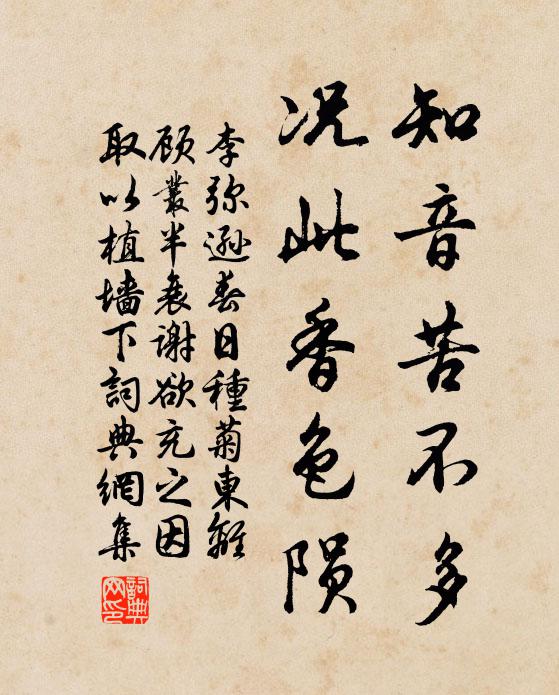 知音苦不多
况此香色陨
李弥逊春日種菊東籬
顾叢半衰谢欲充之因
取以植墙下詞典網集
詞典网印